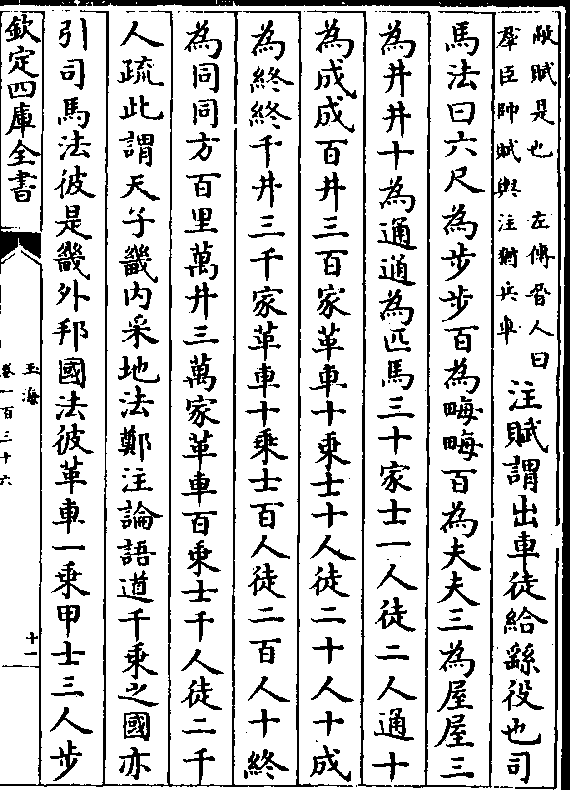 敝賦是也 左傳晉人曰
羣臣帥賦輿注猶兵車
注賦謂出車徒給繇役也司
馬法曰六尺為步步百為畮畮百為夫夫三為屋屋三
為井井十為通通為匹馬三十家士一人徒二人通十
為成成百井三百家革車十乘士十人徒二十人十成
為終終千井三千家革車十乘士百人徒二百人十終
為同同方百里萬井三萬家革車百乘士千人徒二千
人疏此謂天子畿内采地法鄭注論語道千乘之國亦
引司馬法彼是畿外邦國法彼革車一乘甲士三人步
欽定四庫全書
玉海
卷一百三十六
十一